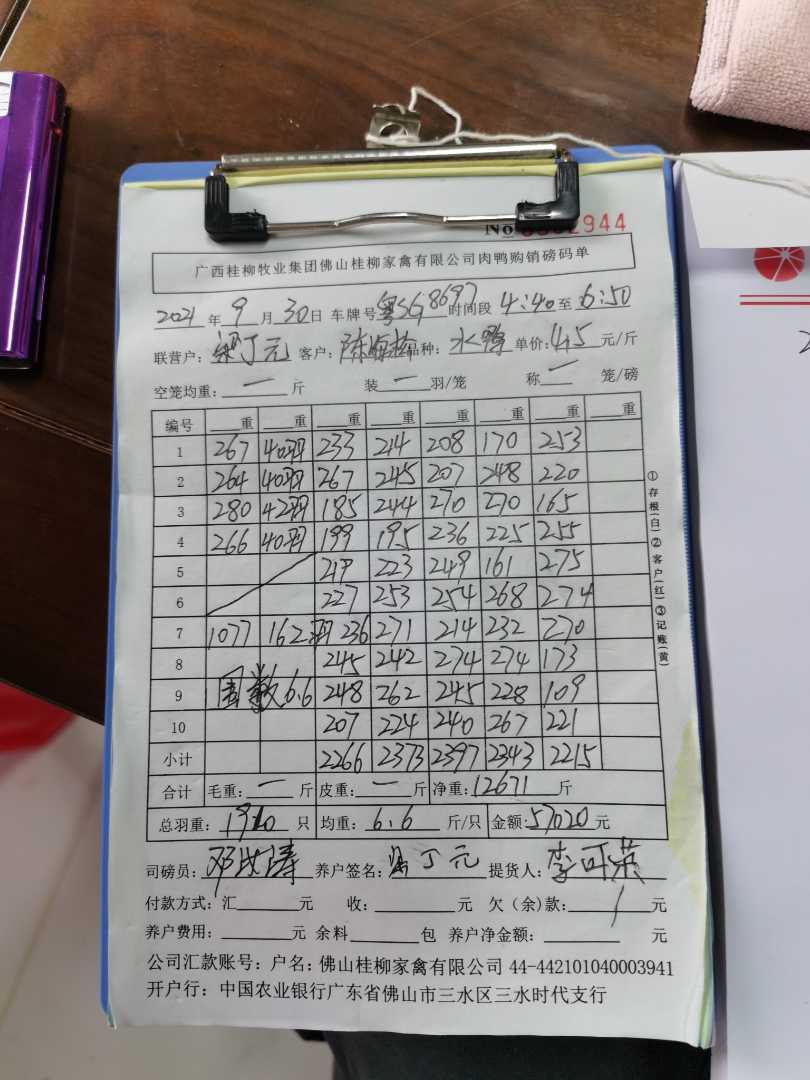 No 2944
广西桂柳牧业集团佛山桂柳家禽有限公司肉鸭购销磅码单
2021 年 9 月 30 日 车牌号 粤SG8697 时间段 4:40 至 6:50
联营户: 梁丁元 客户: 陈 品种: 水鸭 单价: 4.5 元/斤
空笼均重: 一 斤 装 一 羽/笼 称 一 笼/磅
编号 重 重 重 重 重 重 重 重
1 267 40羽 233 214 208 170 253
2 264 40羽 267 245 207 248 220
3 280 42羽 185 244 270 270 165
4 266 40羽 199 195 236 225 255
5 217 223 249 161 275
6 227 253 254 268 274
7 1077 162羽 236 271 214 232 270
8 245 242 274 274 173
9 6.6 248 262 245 228 109
10 207 224 240 267 221
小计 2266 2373 2397 2343 2215
合计 毛重: 一 斤 皮重: 一 斤 净重: 12671 斤
总羽重: 1920 只 均重: 6.6 斤/只 金额: 57020 元
司磅员: 邓 涛 养户签名: 梁丁元 提货人: 李可荣
付款方式: 汇 元 收: 元 欠(余)款: 元
养户费用: 元 余料 包 养户净金额: 元
公司汇款账号: 户名: 佛山桂柳家禽有限公司 44-442101040003941
开户行: 中国农业银行广东省佛山市三水区三水时代支行
①存根(白)②客户(红)③记账(黄)